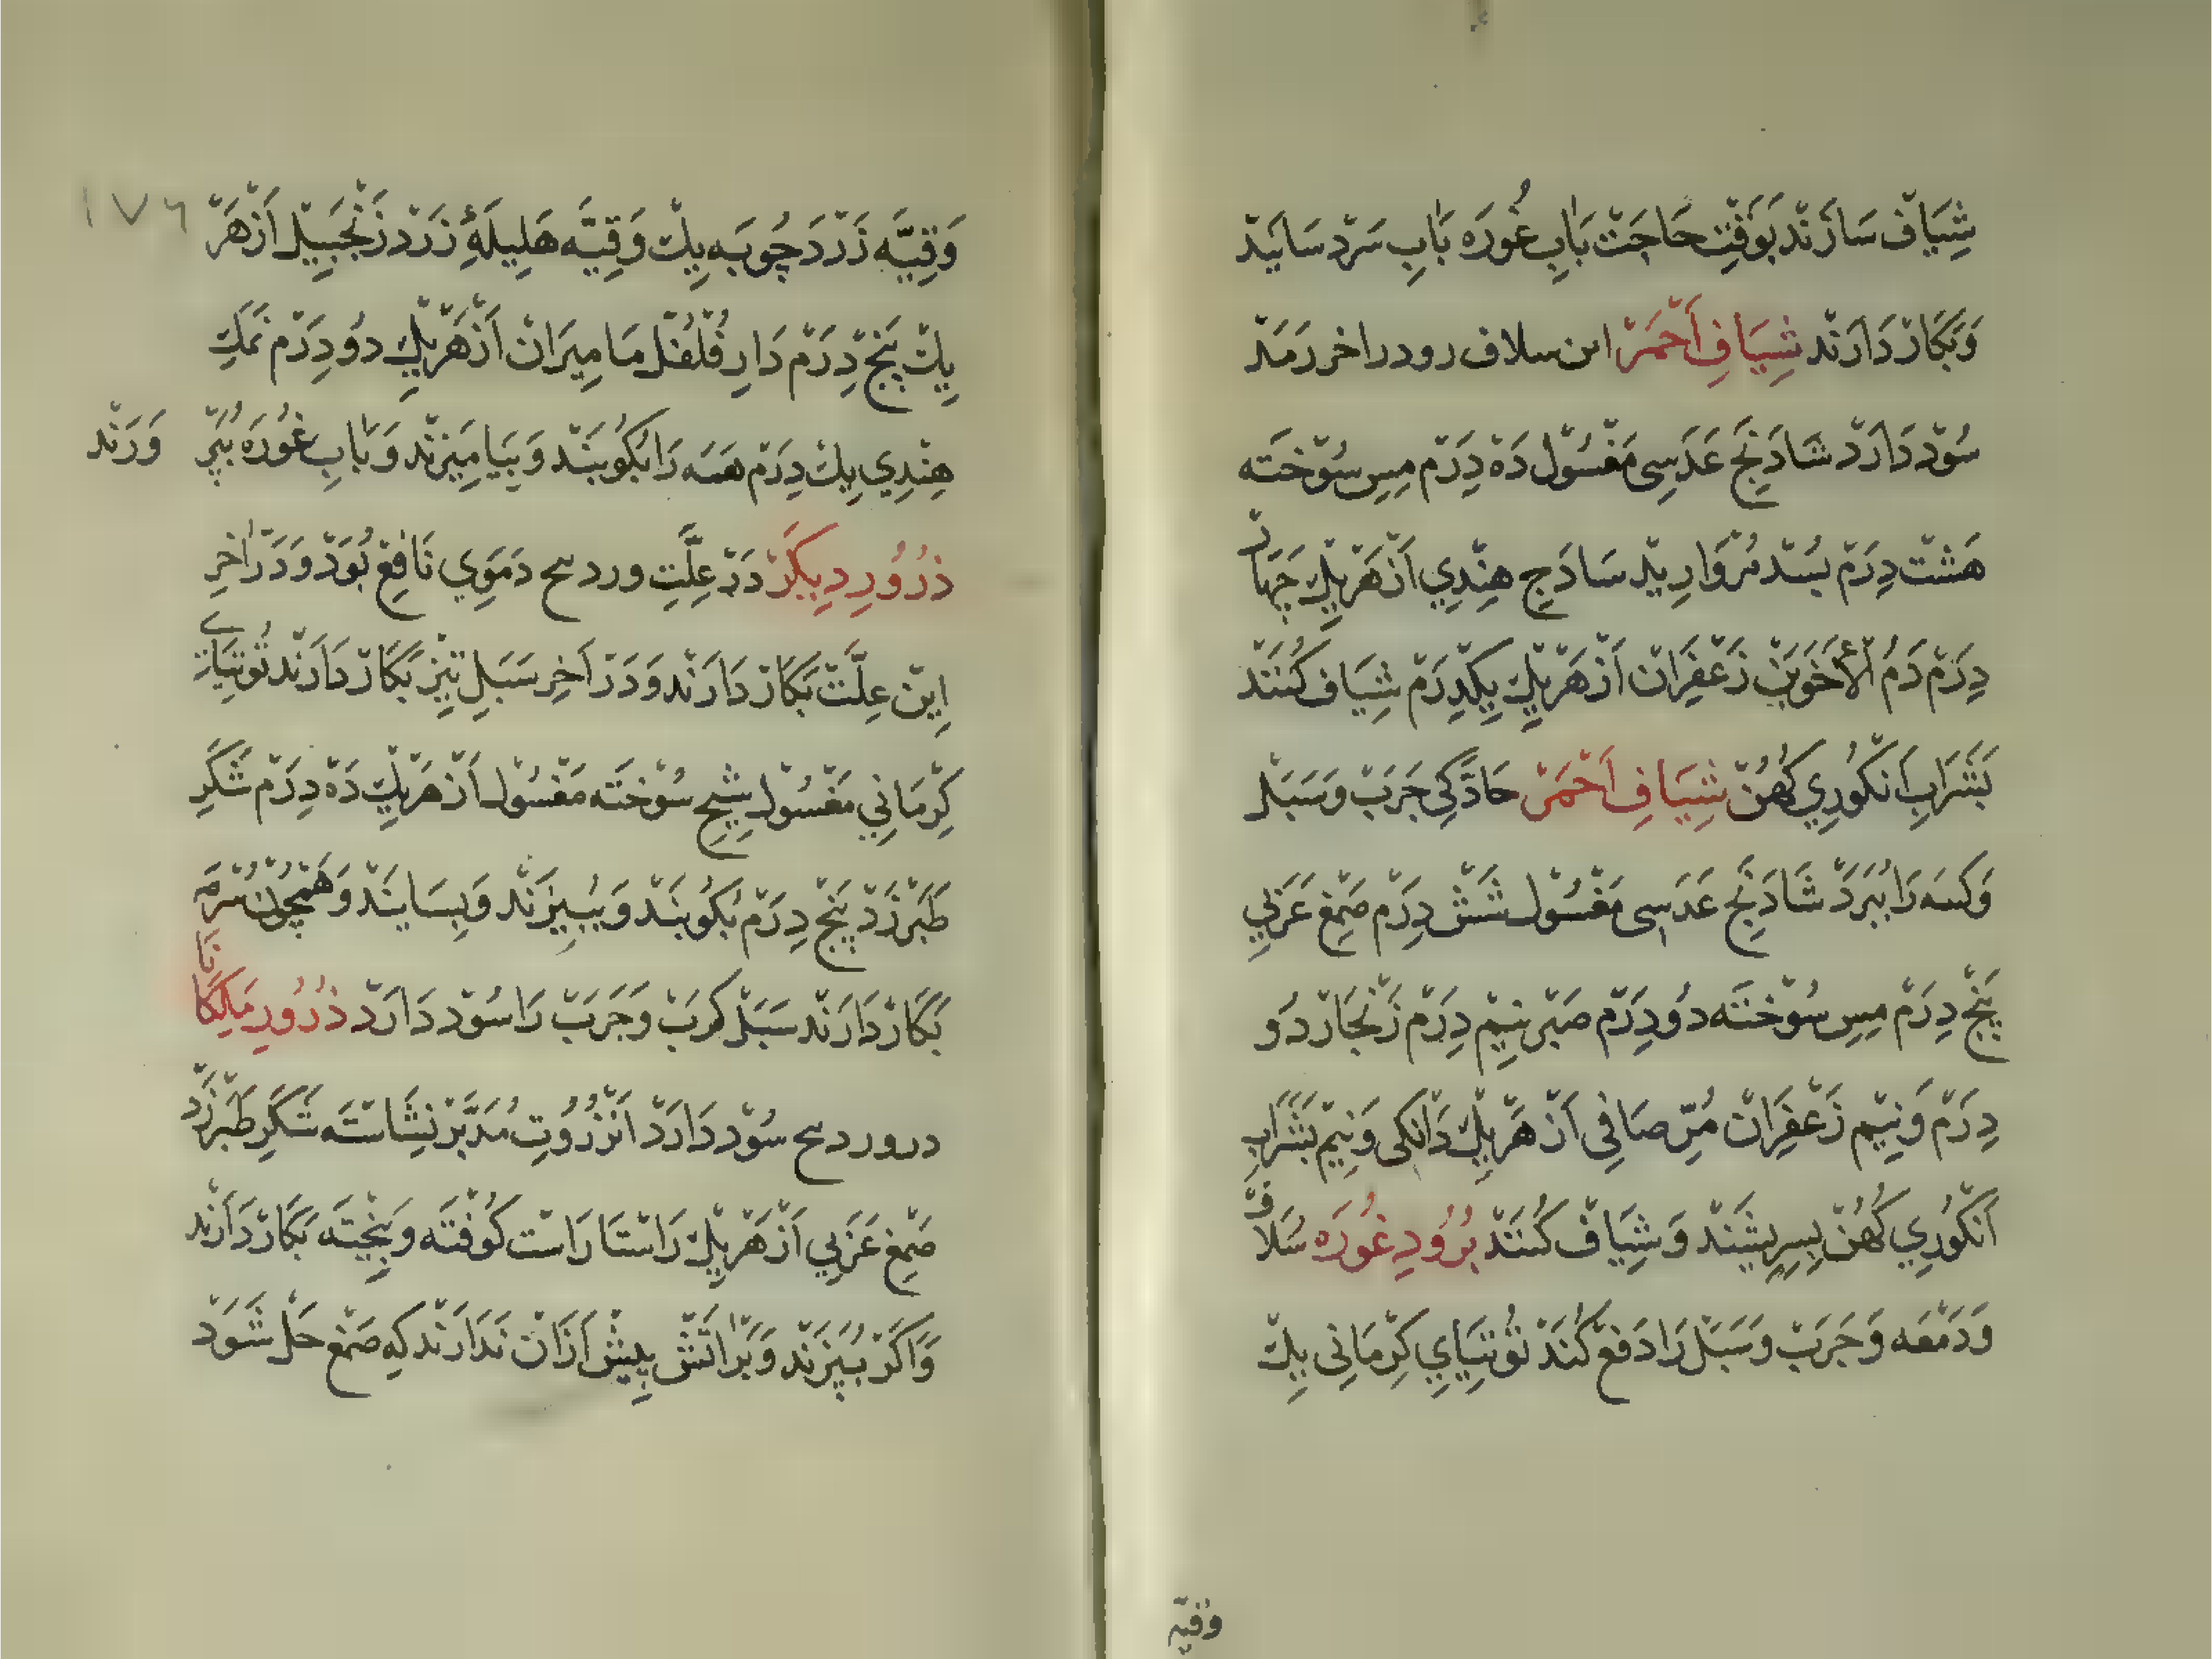 شِیَافْ سَازَنْد بَوَقْتِ حَاجَتْ بَابِ غُورَه بَابِ سَرْد سَایَنْد
وَبَكَارْ دَارَنْد شِیَافِ اَحْمَرْ این سلاف رودر اخر رَمَد
سُوْد دَارَدْ شَادَنِجْ عَدَسِی مَغْسُوْل دَهْ دِرَمْ مِسِ سُوْخْتَه
هَشْتْ دِرَمْ بُسَّدْ مُرْوَارِیْد سَاذَجِ هِنْدِي اَزْ هَرْیِكْ چَهَارْ
دِرَمْ دَمُ الْأَخَوَیْنْ زَعْفِرَانْ اَزْ هَرْیِكْ یِكْدِرَمْ شِیَاف كُنَنْد
بَشَرَابِ اَنْكُورِي كُهُنْ شِیَافِ اَحْمَرْ حَادْ كِی جَرَبْ وَسَبَلْ
وَكمنَه رَا بُبَرَدْ شَادَنِجْ عَدَسِی مَغْسُوْل شَشْ دِرَمْ صَمْغِ عَرَبِي
پَنْج دِرَمْ مِسِ سُوْخْتَه دُو دِرَمْ صَبِرْ نِیْمْ دِرَمْ زَنْجَارْ دُو
دِرَمْ وَنِیْم زَعْفِرَانْ مُرِّ صَافِی اَزْ هَرْیِكْ دَانْكِی وَنِیمْ بَشَرَابِ
اَنْكُورِي كُهُنْ بِسِرِیشَنْد وَشِیَافْ كُنَنْد بَرُودِ غُورَه سُلَاقْ
وَدَمْعَه وَجَرَبْ وَسَبَلْ رَا دَفْعْ كُنَدْ تُوتِیَايِ كِرْمَانِی یِكْ
وقیّه
١٧٦
وَقِیَّه زَرْدَ چُوبَه یِكْ وَقِیَّه هَلِیلَهٔ زَرْد زَنْجَبِیْل اَزْ هَرْ
یِكْ پَنْجْ دِرَمْ دَارِ فُلْفُلْ مَامِیرَانْ اَزْ هَرْیِكْ دُو دِرَمْ نَمَكِ
هِنْدِي یِكْ دِرَمْ هَمَه رَا بُكُوبَنْد وَبِیَامِیزَنْد وَبَابِ غُورَه بُپَرْ وَرَنْد
ذَرُورِ دِیكَرْ دَرْ عِلَّتِ وردیج دَمَوِي نَافِعْ بُوَدْ وَدَرْ اٰخِرِ
اِینْ عِلَّتْ بَكَارْ دَارَنْد وَدَرْ اَخِرِ سَبَلِ نِیْزْ بَكَارْ دَارَنْد تُوتِیَايِ
كِرْمَانِي مَغْسُولْ شِیْحِ سُوْخْتَه مَغْسُوْل اَزْ هَرْیِكْ دَهْ دِرَمْ شَكَرِ
طَبَرْزَدْ پَنْجْ دِرَمْ بُكُوبَنْد وَبُبِیزَنْد وَبِسَایَنْد وَهَمْچُونْ سُرْمَه
بَكَارْ دَارَنْد سَبَلْ كربْ وَجَرَبْ رَا سُوْد دَارَدْ ذَرُورِ مَلِكَايَا
در وردیج سُوْد دَارَدْ اَنْزَرُوْتِ مُدَبَّرْ نِشَاسْتَه شَكَرِ طَبَرْزَدْ
صَمْغِ عَرَبِي اَزْ هَرْیِكْ رَاسْتَا رَاسْت كُوفْتَه وَبِیخْتَه بَكَارْ دَارَنْد
وَاكَرْ بُپَزَنْد وَبَرْ اٰتَشْ پِیشْ اَزَانْ نَدَارَنْد كِه صَمْغ حَلْ شَوَدْ